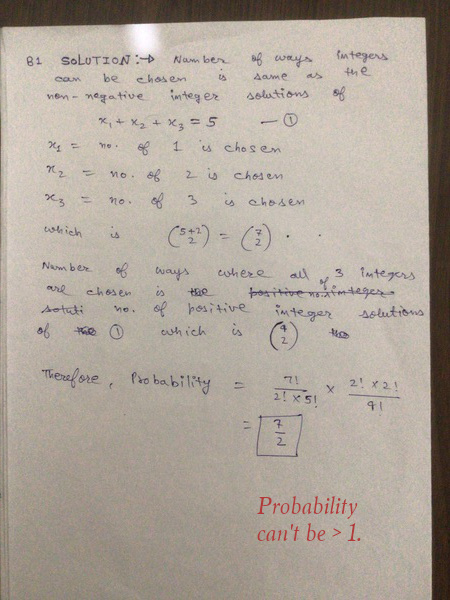 B1 SOLUTION :→ Number of ways integers
can be chosen is same as the
non-negative integer solutions of
x₁ + x₂ + x₃ = 5 — ①
x₁ = no. of 1 is chosen
x₂ = no. of 2 is chosen
x₃ = no. of 3 is chosen
which is (5+2 2) = (7 2) . .
Number of ways where all of 3 integers
are chosen is the positive no. integer
soluti no. of positive integer solutions
of the ① which is (4 2) the
Therefore, Probability = 7! / 2! × 5! × 2! × 2! / 4!
= 7/2
Probability
can't be > 1.